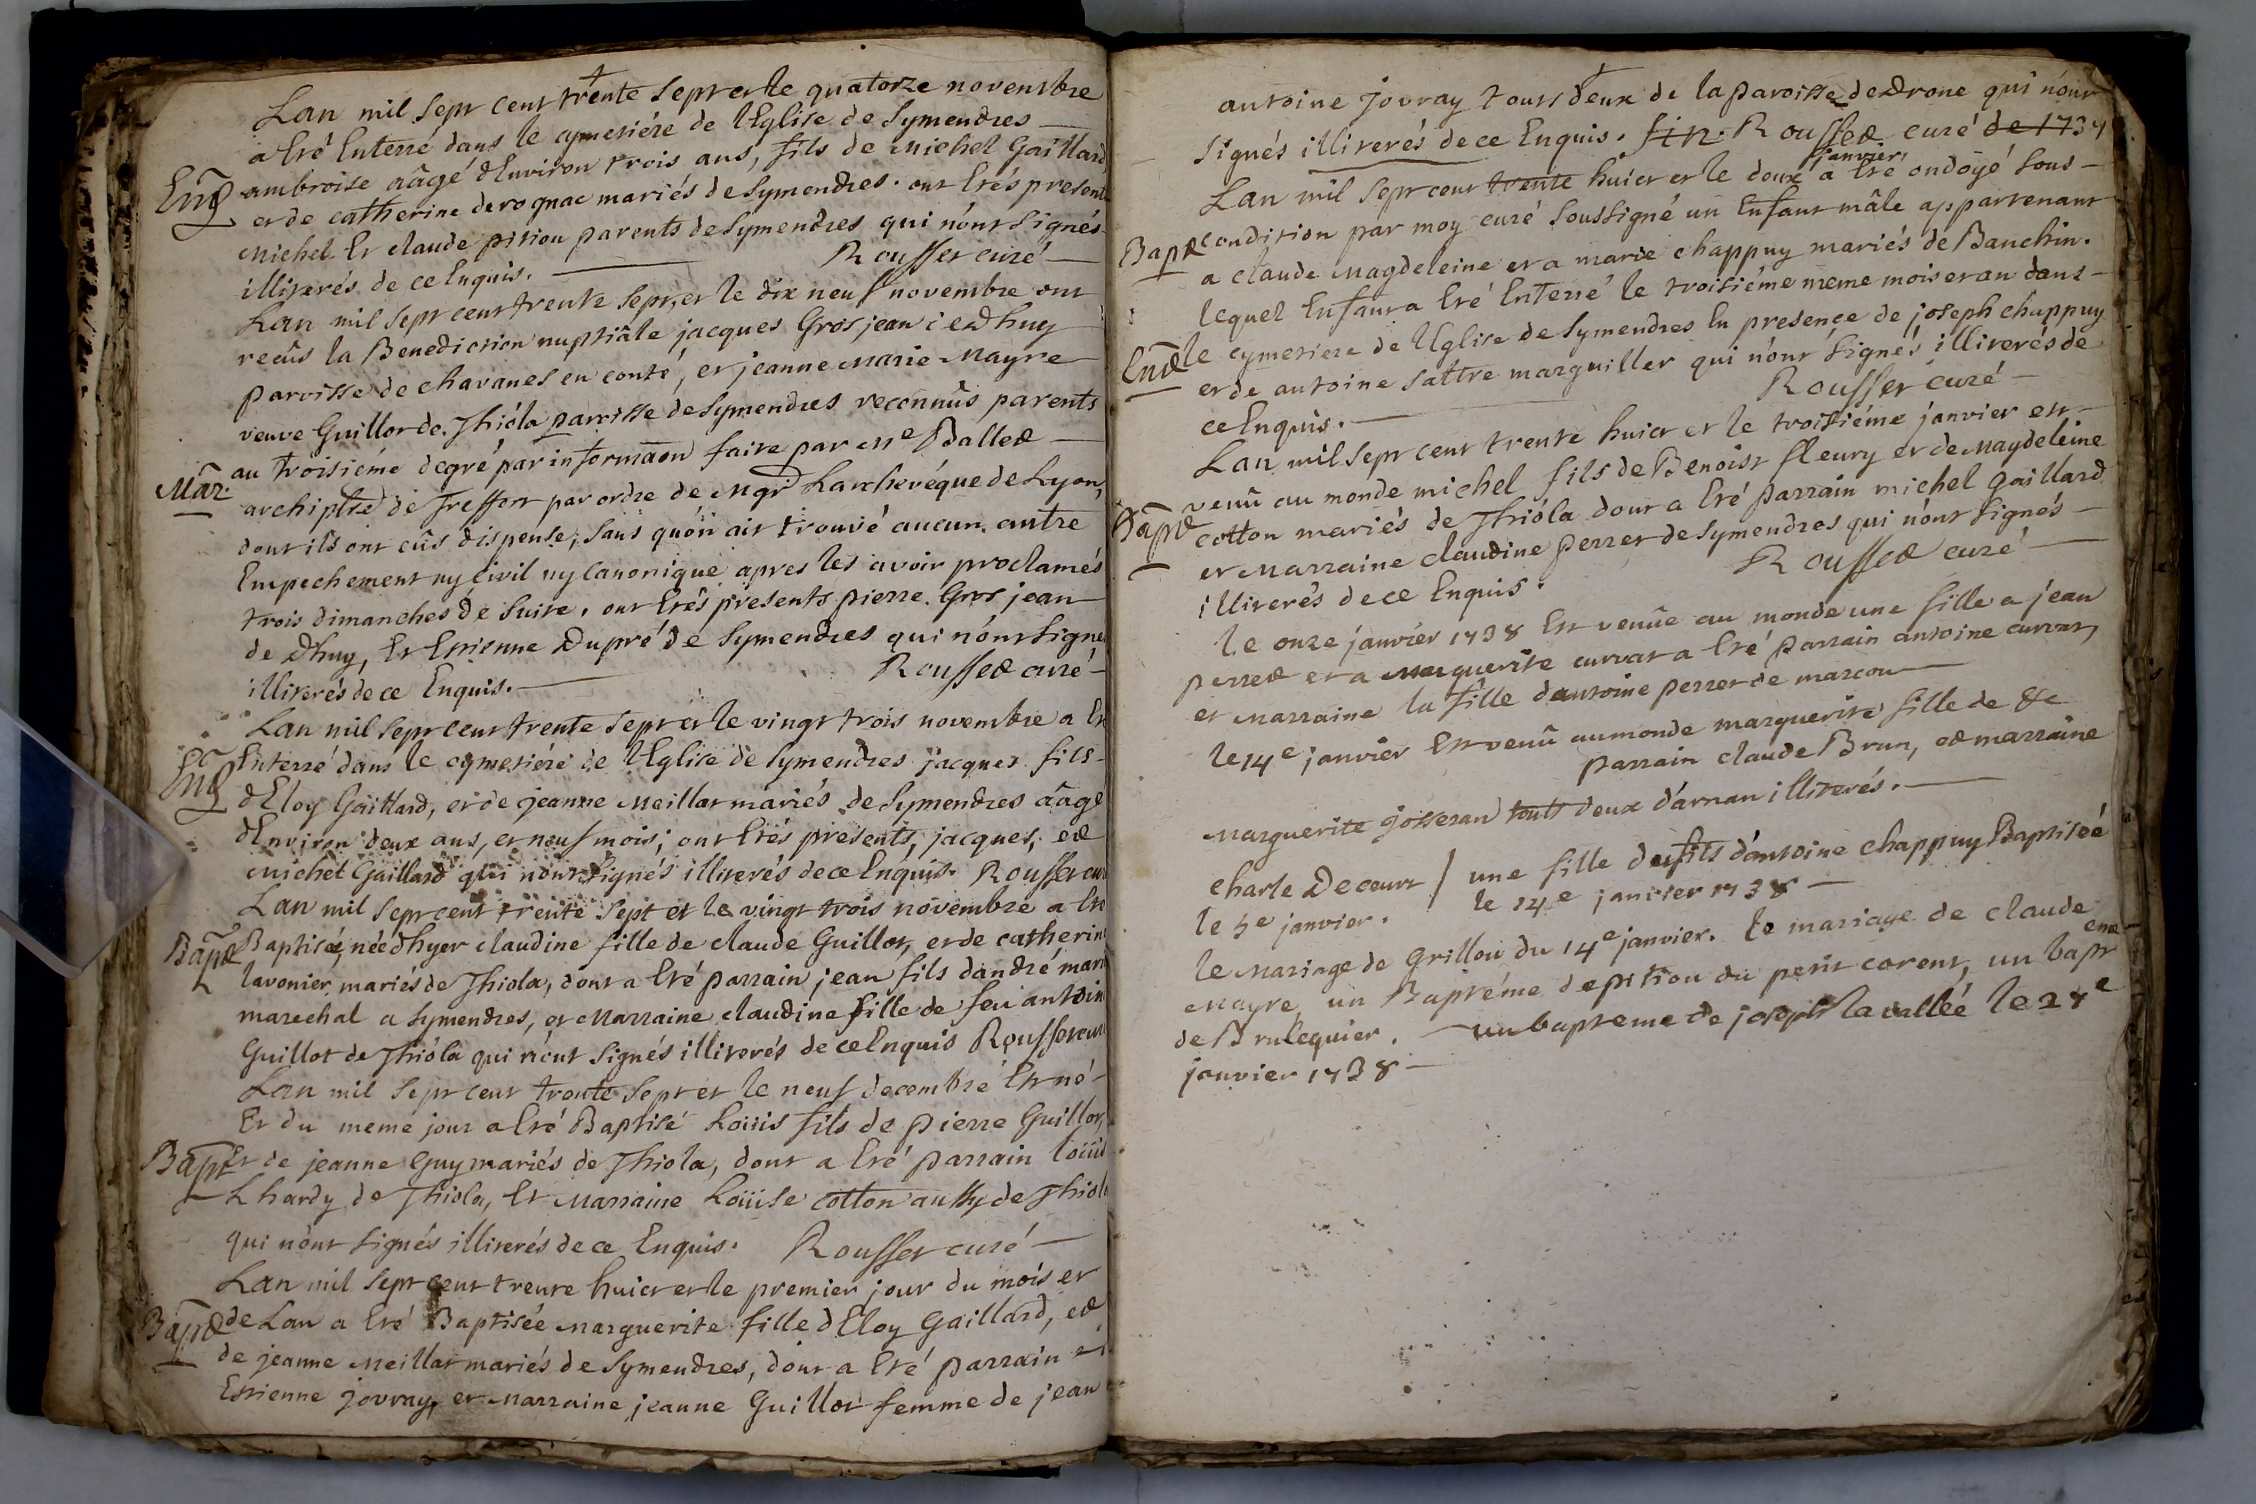 Lan mil sept cent trente sept et le quatorze novembre
a Eté Enterré dans le cymetiére de lEglise de Symendres
Ent ambroise aâgé dEnviron trois ans, fils de Michel Gaillard
et de catherine derognac mariés de Symendres. ont Etés present
Michel Et claude pitiou parents de Symendres qui n'ont signés
illiterés de ce Enquis. Rousset curé
Lan mil sept cent trente sept, et le dix neuf novembre ont
recûs la Benediction nuptiâle jacques Gros jean i e dhuy
paroisse de chavanes en conté, et jeanne Marie Mayre
veuve Guillot de Thióla parrisse de Symendres reconnûs parents
au troisiéme degré par informaon faite par Me Ballet
Mar. archiptre de Treffort par ordre de Mgr Larchevéque de Lyon,
dont ils ont eûs dispense, sans quón ait trouvé aucun autre
Empechement ny civil ny canonique apres les avoir proclamés
trois dimanches de suite. ont Etés présents pierre Gros jean
de dhuy, Et Estienne Dupré de Symendres qui n'ont signé
illiterés de ce Enquis. Rousset curé
Lan mil sept cent trente sept et le vingt trois novembre a Et
Ent Enterré dans le cymetiére de lEglise de Symendres jacques fils
dEloy Gaillard, et de jeanne Meillat mariés de Symendres aâgé
dEnviron deux ans, et neuf mois; ont Etés présents, jacques, et
Michel Gaillard qui n'ont signés illiterés de ce Enquis. Rousset cur
Lan mil sept cent trente sept et le vingt trois novembre a Eté
Bapt Baptisée, née dhyer claudine fille de claude Guillot, et de catherine
lavonier, mariés de Thiola, dont a Eté parrain jean fils dandré mari
marechal a Symendres, et Marraine claudine fille de feu antoin
Guillot de Thióla qui n'ont signés illiterés de ce Enquis Rousset cur
Lan mil sept cent trente sept et le neuf decembre Est né
Et du meme jour a Eté Baptisé Loüis fils de pierre Guillot,
Bapt Et de jeanne Guy mariés de Thiola, dont a Eté parrain loüis
Lhardy de Thiola, Et Marraine Loüise cotton aussy de Thiol
qui n'ont signés illiterés de ce Enquis. Rousset curé
Lan mil sept cent trente huict et le premier jour du mois et
Bapt de Lan a Eté Baptisée Marguerite fille dEloy Gaillard, et
de jeanne Meillat mariés de Symendres, dont a Eté parrain
Estienne jovray, et Marraine jeanne Guillot femme de jean
antoine jovray touts deux de la paroisse de Drone qui n'ont
signés illiterés de ce Enquis. fin. Rousset curé de 1737
janvier
Lan mil sept cent trente huict et le deux a Eté ondoyé sous
Bapt condition par moy curé soussigné un Enfant mâle appartenant
a claude Magdeleine et a marie chappuy mariés de Banchin.
lequel Enfant a Eté Enterré le troisiéme meme mois et an dans
Ent le cymetiere de lEglise de Symendres En presence de joseph chappuy
et de antoine sattre marguiller qui n'ont signés illiterés de
ce Enquis. Rousset curé
Lan mil sept cent trente huict et le troisiéme janvier est
venû au monde michel fils de Benoist fleury et de Magdeleine
Bapt cotton mariés de Thióla dont a Eté parrain michel gaillard
et Marraine claudine perret de Symendres qui n'ont signés
illiterés de ce Enquis. Rousset curé
le onze janvier 1738 Est venûe au monde une fille a jean
perret et a Marguerite curvat a Eté parrain antoine curvat,
et Marraine la fille dantoine perret de marcou
le 14e janvier Est venû au monde marguerite fille de &c
parrain claude Brun, et marraine
Marguerite josseran touts deux dárnan illiterés.
charle Decourt / une fille du fils dántoine chappuy Baptiseé
le 5e janvier. le 14e janvier 1738
le Mariage de Grillou du 14e janvier. le mariage de claude
Mayre un Baptéme de pitiou du petit corent, un bapt eme
de Brulequier. un bapteme de joseph lavalleé le 28e
janvier 1738